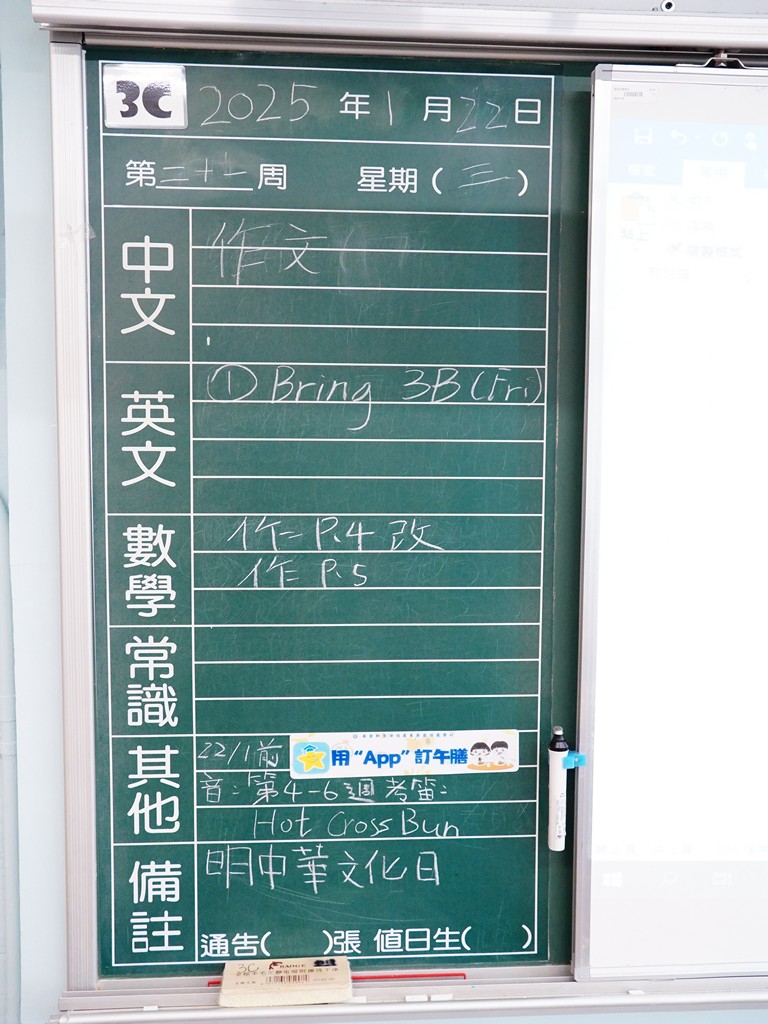 3C 2025 年 1 月 22 日
第 二十一 周 星期 ( 三 )
中文
作文
英文
① Bring 3B (Fri)
數學
作= P.4 改
作= P.5
常識
其他
22/1前 用 “App” 訂午膳
音: 第4-6週考笛:
Hot Cross Bun
備註
明中華文化日
通告( )張 值日生( )
3C